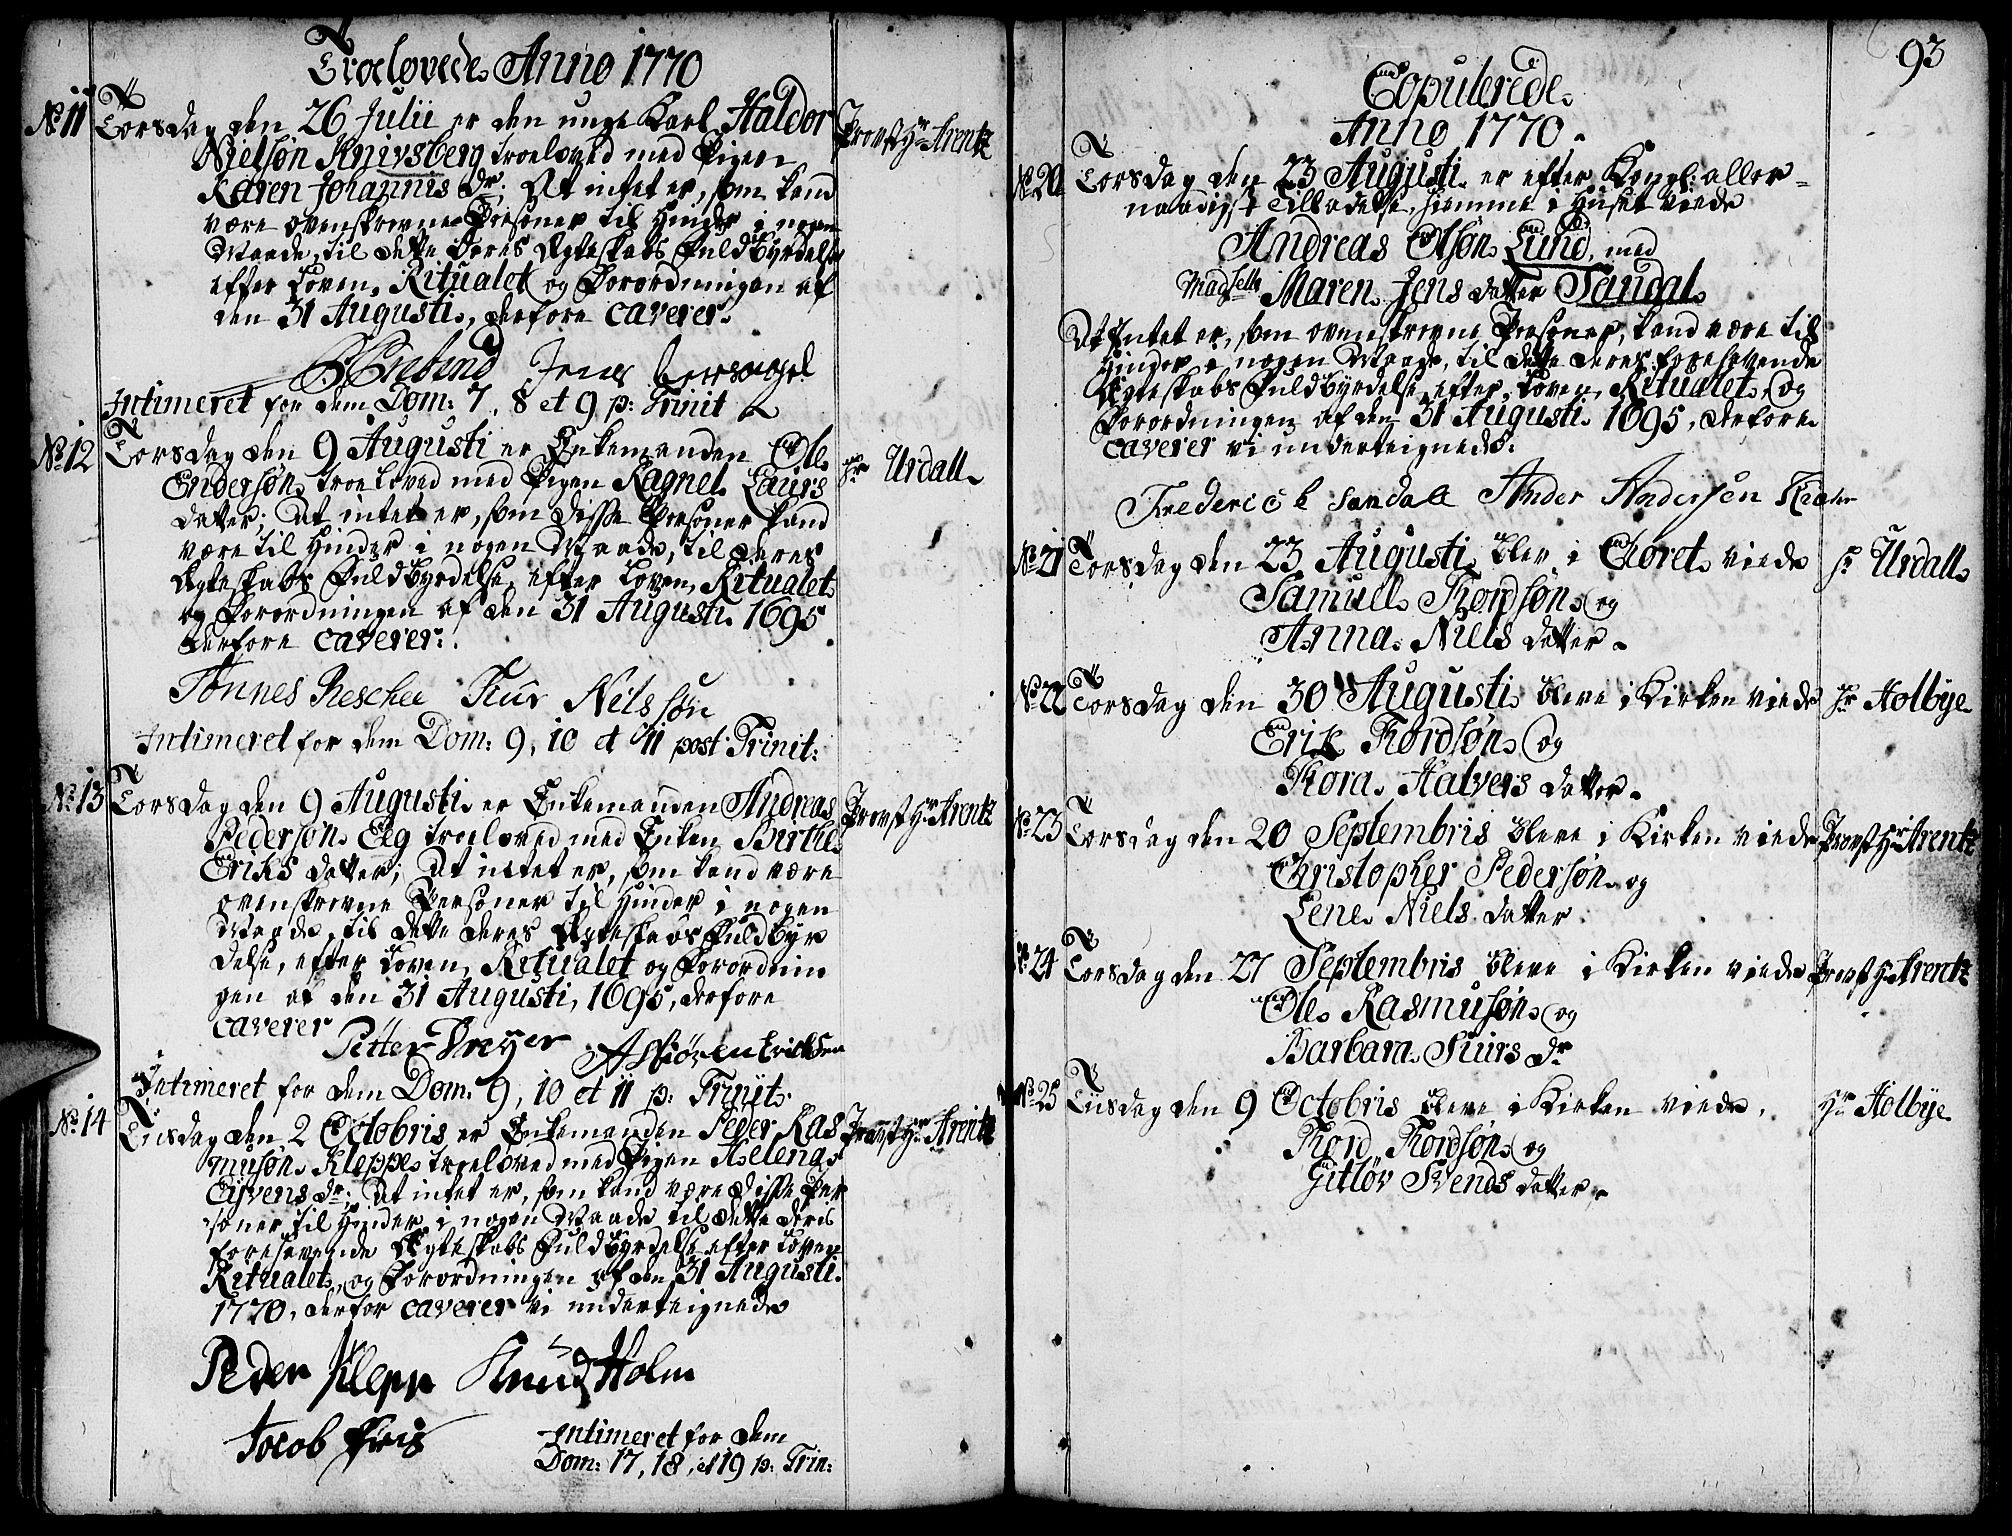 Troelovede Anno 1770
No 11 Torsdag den 26 Julii er den unge Karl Haldor Provst Hr Arentz
Nielsøn Knivsberg troeloved med Pigen
Karen Johannis Dr. At intet er, som kand
være ovenskrevne Persöner til Hinder i nogen
Maade, til dette deres Ægteskabs Fuldbyrdelse
effter Loven, Ritualet og Forordningen af
den 31 Augusti, derfore caverer.
Jens
Intimeret for dem Dom: 7, 8 et 9 p: Trinit
No 12 Torsdag den 9 Augusti er Enkemanden Ole Hr Urdall
Endersøn troeloved med Pigen Ragnel Laurs
datter; At intet er, som disse Persöner kand
være til Hinder i nogen Maade, til deres
Ægteskabs Fuldbyrdelse, efter Loven, Ritualet
og Forordningen af den 31 Augusti 1695
derfore caverer.
Tönnes Reschee Tiur Nilssøn
Intimeret for dem Dom: 9, 10 et 11 post Trinit:
No 13 Torsdag den 9 Augusti er Enkemanden Andreas Provst Hr Arentz
Pedersøn Elg troeloved med Enken Birthe
Eriks datter; At intet er, som kand være
ovenskrevne Persöner til Hinder i nogen
Maade, til dette deres Ægteskabs Fuldbyr
delse, efter Loven, Ritualet og Forordnin
gen af den 31 Augusti, 1695, derfore
caverer
Petter Dreyer Asbiören Erichsen
Intimeret for dem Dom: 9, 10 et 11 p: Trinit.
No 14 Tiisdag den 2 Octobris er Enkemanden Peder Ras Provst Hr Arentz
musøn Kleppe troeloved med Pigen Helena
Eivens Dr. At intet er, som kand være disse Per
söner til Hinder i nogen Maade til dette deres
forehavende Ægteskabs Fuldbyrdelse efter Loven
Ritualet, og Forordningen af den 31 Augusti
1770, derfor caverer vi underteignede
Peder Klepp Knud Holm
Jacob Friis
Intimeret for dem
Dom: 17, 18, et 19 p: Trin:
93
Copulerede
Anno 1770.
No 20 Torsdag den 23 Augusti er efter Kongl: aller-
naadigst Tilladelse, hiemme i Huset viede
Andreas Olsøn Lund, med
Madselle Maren Jens datter Sandal
At Intet er, som ovenskrevne Persöner, kand være til
Hinder i nogen Maade, til dette deres forehavende
Ægteskabs Fuldbyrdelse, efter Loven, Ritualet, og
Forordningen af den 31 Augusti 1695, derfore
caverer vi underteignede.
Frederich Sandall Ander Andersen
No 21 Torsdag den 23 Augusti blev i Choret viede Hr Urdall
Samuel Thordsøn og
Anna Niels datter
No 22 Torsdag den 30 Augusti bleve i Kirken viede Hr Holbye
Erik Thordsøn og
Thora Halvers datter
No 23 Torsdag den 20 Septembris bleve i Kirken viede Provst Hr Arentz
Christopher Pedersøn og
Lene Niels datter
No 24 Torsdag den 27 Septembris bleve i Kirken viede Provst Hr Arentz
Ole Rasmusøn og
Barbara Siurs Dr
No 25 Tiisdag den 9 Octobris bleve i Kirken viede, Hr Holbye
Thord Thordsøn og
Gitløv Svends datter